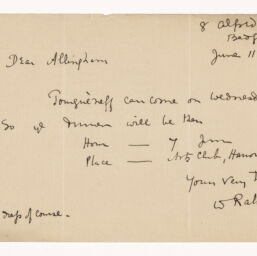 8 Alfred
Bedf
June 11
Dear Allingham
Tourguéneff can come on Wednesd
So ye dinner will be then
Hour — 7 
Place — Arts Club, Hanov
Yours very T
W Ral
dress of course.